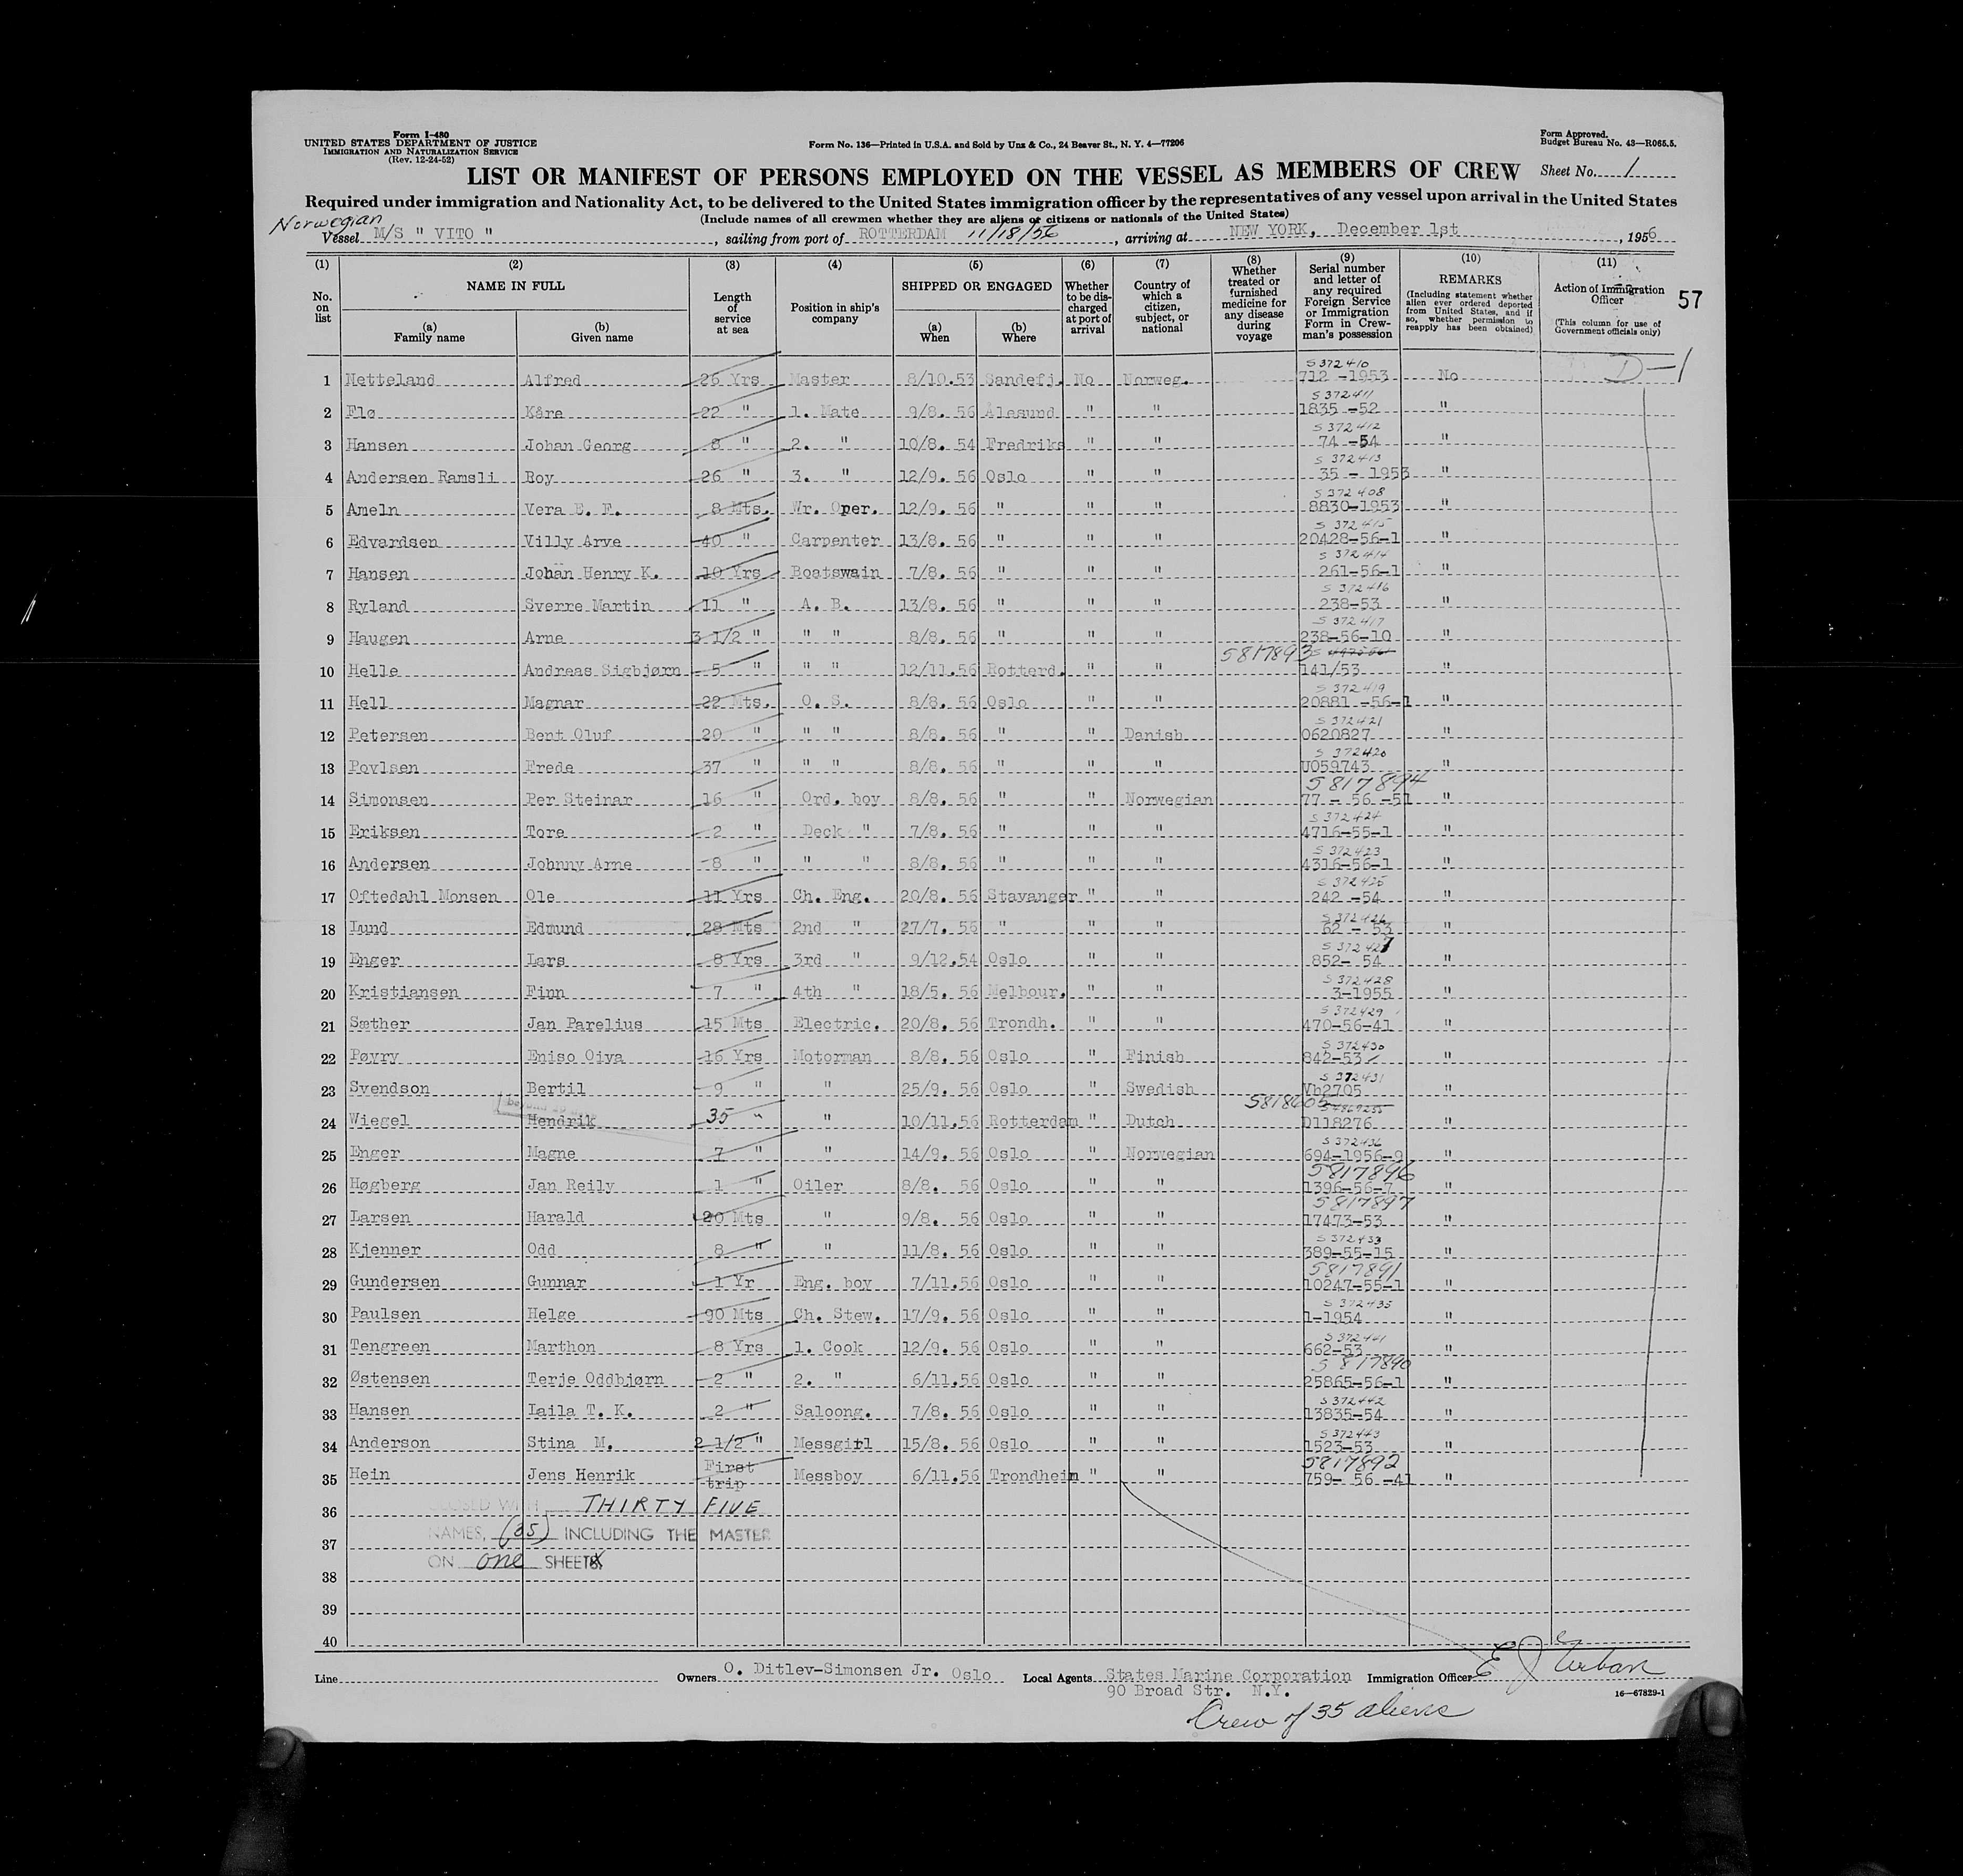 Form I-480
UNITED STATES DEPARTMENT OF JUSTICE
IMMIGRATION AND NATURALIZATION SERVICE
(Rev. 12-24-52)
Form No. 136—Printed in U.S.A. and Sold by Unz & Co., 24 Beaver St., N. Y. 4—77206
Form Approved.
Budget Bureau No. 43—R065.5.
LIST OR MANIFEST OF PERSONS EMPLOYED ON THE VESSEL AS MEMBERS OF CREW
Sheet No. 1
Required under immigration and Nationality Act, to be delivered to the United States immigration officer by the representatives of any vessel upon arrival in the United States
(Include names of all crewmen whether they are aliens or citizens or nationals of the United States)
Norwegian
Vessel M/S " VITO " , sailing from port of ROTTERDAM 11/18/56 , arriving at NEW YORK, December 1st , 1956
(1) No. on list
(2) NAME IN FULL
(a) Family name
(b) Given name
(3) Length of service at sea
(4) Position in ship's company
(5) SHIPPED OR ENGAGED
(a) When
(b) Where
(6) Whether to be discharged at port of arrival
(7) Country of which a citizen, subject, or national
(8) Whether treated or furnished medicine for any disease during voyage
(9) Serial number and letter of any required Foreign Service or Immigration Form in Crewman's possession
(10) REMARKS (Including statement whether alien ever ordered deported from United States, and if so, whether permission to reapply has been obtained)
(11) Action of Immigration Officer (This column for use of Government officials only)
57
D-1
S 372410
1 Netteland Alfred 26 Yrs Master 8/10.53 Sandefj. No Norweg. 712 -1953 No
S 372411
2 Flø Kåre 22 " 1. Mate 9/8. 56 Ålesund " " 1835 -52 "
S 372412
3 Hansen Johan Georg 8 " 2. " 10/8. 54 Fredriks " " 74 -54 "
S 372413
4 Andersen Ramsli Roy 26 " 3. " 12/9. 56 Oslo " " 35 - 1953 "
S 372408
5 Ameln Vera E. F. 8 Mts. Wr. Oper. 12/9. 56 " " " 8830-1953 "
S 372415
6 Edvardsen Villy Arve 40 " Carpenter 13/8. 56 " " " 20428-56-1 "
S 372414
7 Hansen Johan Henry K. 10 Yrs Boatswain 7/8. 56 " " " 261-56-1 "
S 372416
8 Ryland Sverre Martin 11 " A. B. 13/8. 56 " " " 238-53 "
S 372417
9 Haugen Arne 3 1/2 " " " 8/8. 56 " " " 238-56-10 "
5817893
10 Helle Andreas Sigbjørn 5 " " " 12/11.56 Rotterd. " " 141/53 "
S 372419
11 Hell Magnar 22 Mts. O. S. 8/8. 56 Oslo " " 20881 -56-1 "
S 372421
12 Petersen Bent Oluf 20 " " " 8/8. 56 " " Danish 0620827 "
S 372420
13 Povlsen Frede 37 " " " 8/8. 56 " " " U059743 "
5817894
14 Simonsen Per Steinar 16 " Ord. boy 8/8. 56 " " Norwegian 77 - 56 -51 "
S 372424
15 Eriksen Tore 2 " Deck " 7/8. 56 " " " 4716-55-1 "
S 372423
16 Andersen Johnny Arne 8 " " " 8/8. 56 " " " 4316-56-1 "
S 372425
17 Oftedahl Monsen Ole 11 Yrs Ch. Eng. 20/8. 56 Stavanger " " 242 -54 "
S 372426
18 Lund Edmund 28 Mts 2nd " 27/7. 56 " " " 62 - 53 "
S 372427
19 Enger Lars 8 Yrs 3rd " 9/12.54 Oslo " " 852- 54 "
S 372428
20 Kristiansen Finn 7 " 4th " 18/5. 56 Melbour. " " 3-1955 "
S 372429
21 Sæther Jan Parelius 15 Mts Electric. 20/8. 56 Trondh. " " 470-56-41 "
S 372430
22 Pøyry Eniso Oiva 16 Yrs Motorman 8/8. 56 Oslo " Finish 842-53 "
S 372431
23 Svendson Bertil 9 " " 25/9. 56 Oslo " Swedish Vb2705 "
5818605
24 Wiegel Hendrik 35 " " 10/11.56 Rotterdam " Dutch D118276 "
S 372436
25 Enger Magne 7 " " 14/9. 56 Oslo " Norwegian 694-1956-9 "
5817896
26 Høgberg Jan Reily 1 " Oiler 8/8. 56 Oslo " " 1396-56-7 "
5817897
27 Larsen Harald 20 Mts " 9/8. 56 Oslo " " 17473-53 "
S 372433
28 Kjenner Odd 8 " " 11/8. 56 Oslo " " 389-55-15 "
5817891
29 Gundersen Gunnar 1 Yr Eng. boy 7/11.56 Oslo " " 10247-55-1 "
S 372435
30 Paulsen Helge 90 Mts Ch. Stew. 17/9. 56 Oslo " " 1-1954 "
S 372441
31 Tengreen Marthon 8 Yrs 1. Cook 12/9. 56 Oslo " " 662-53 "
5817890
32 Østensen Terje Oddbjørn 2 " 2. " 6/11.56 Oslo " " 25865-56-1 "
S 372442
33 Hansen Laila T. K. 2 " Saloong. 7/8. 56 Oslo " " 13835-54 "
S 372443
34 Anderson Stina M. 2 1/2 " Messgirl 15/8. 56 Oslo " " 1523-53 "
5817892
35 Hein Jens Henrik First trip Messboy 6/11.56 Trondheim " " 759- 56 -41 "
36 CLOSED WITH THIRTY FIVE
37 NAMES, (35) INCLUDING THE MASTER
38 ON one SHEETS
39
40
Line Owners O. Ditlev-Simonsen Jr. Oslo Local Agents States Marine Corporation Immigration Officer E J Urban
90 Broad Str. N.Y.
16—67829-1
Crew of 35 aliens